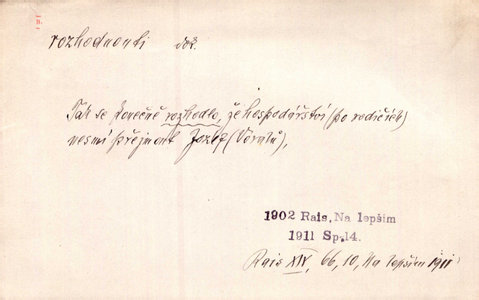 rozhodnouti dok.
Tak se konečně rozhodlo, že hospodářství (po rodičích)
nesmí přejmout Josef (Vóralů),
1902 Rais, Na lepším
1911 Sp.14.
Rais XIV, 66, 10, Na lepším 1911